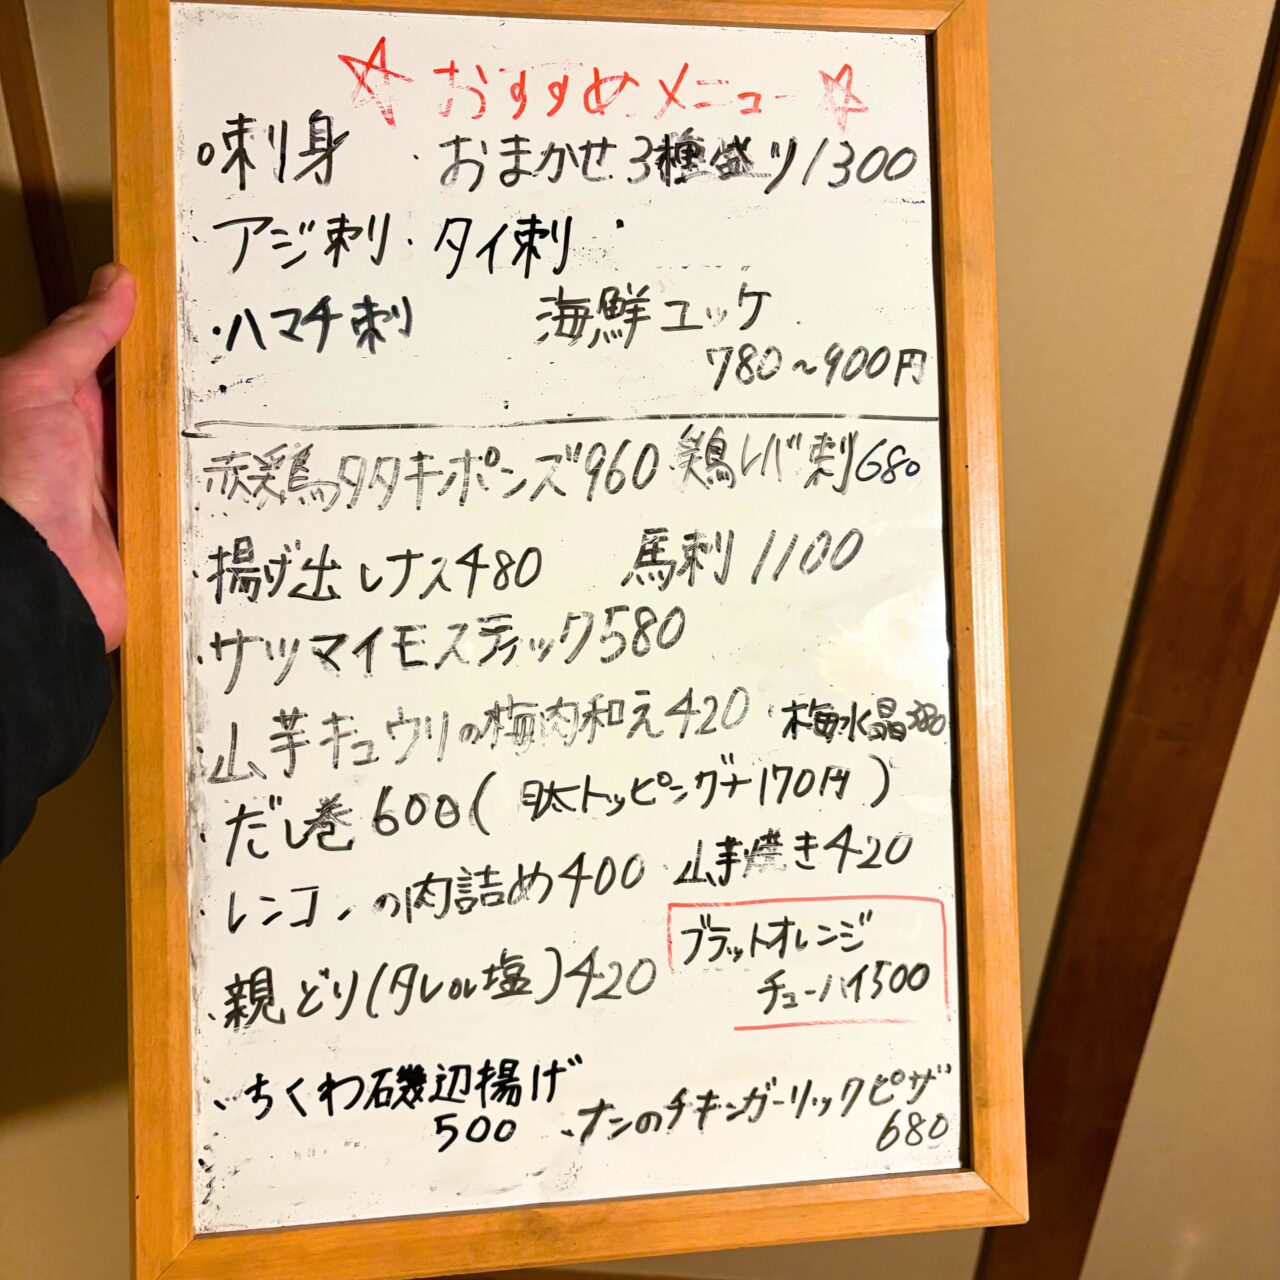 ☆おすすめメニュー☆
○刺身 ・おまかせ3種盛り1300
・アジ刺・タイ刺・
・ハマチ刺 海鮮ユッケ
780～900円
赤鶏タタキポンズ960 鶏レバ刺680
・揚げ出しナス480 馬刺1100
・サツマイモスティック580
・山芋キュウリの梅肉和え420 梅水晶380
・だし巻600(明太トッピング+170円)
・レンコンの肉詰め400・山芋焼き420
・親どり(タレor塩)420
ブラットオレンジ
チューハイ500
・ちくわ磯辺揚げ
500
・ナンのチキンガーリックピザ
680